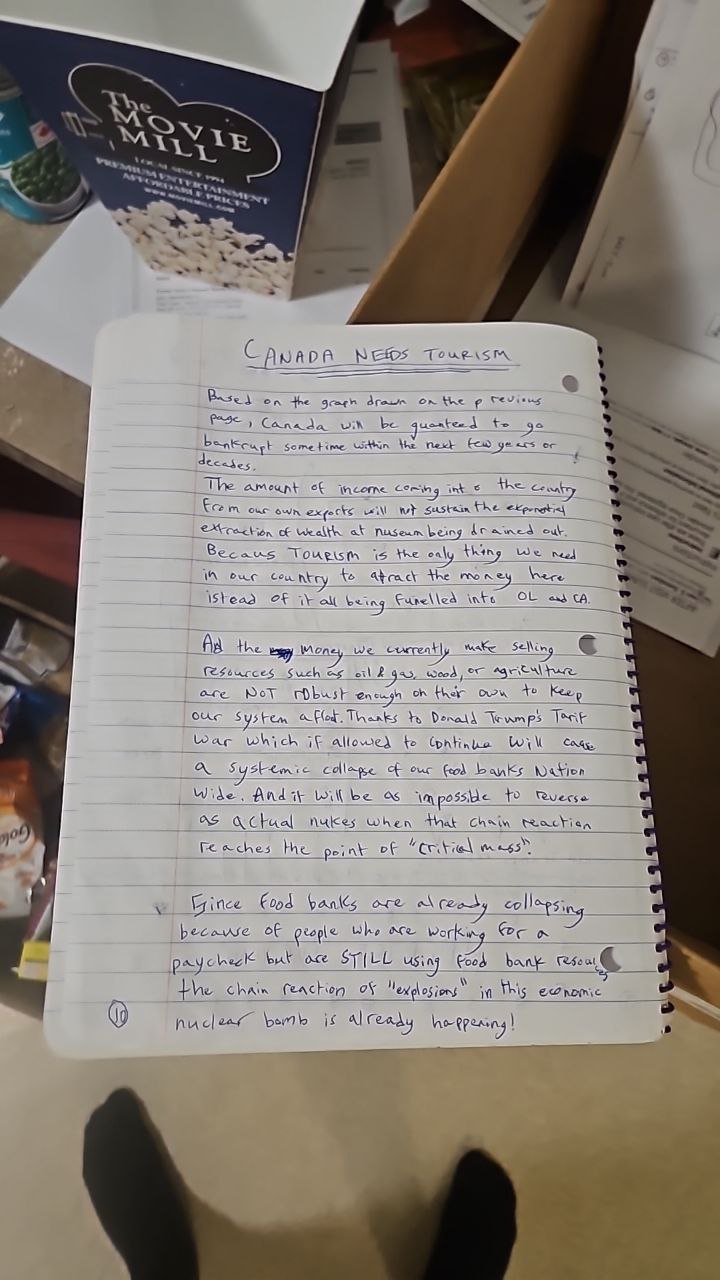 The
MOVIE
MILL
LOCAL SINCE 1994
PREMIUM ENTERTAINMENT
AFFORDABLE PRICES
WWW.MOVIEMILL.COM
CANADA NEEDS TOURISM
Based on the graph drawn on the p revious
page, Canada will be guanteed to go
bankrupt sometime within the next few years or
decades.
The amount of income coming int o the country
from our own exports will not sustain the
extraction of wealth at nuseum being drained out.
Becaus TOURISM is the only thing we need
in our country to atract the money here
istead of it all being funelled into OL and CA.
And the Money we currently make selling
resources such as oil & gas, wood, or agriculture
are NOT robust enough on their own to keep
our system aflot. Thanks to Donald Trump's Tarif
war which if allowed to continue will case
a systemic collapse of our food banks Nation
Wide. And it will be as impossible to reverse
as actual nukes when that chain reaction
reaches the point of "critical mass".
Since food banks are already collapsing
because of people who are working for a
paycheck but are STILL using food bank resources
the chain reaction of "explosions" in this economic
nuclear bomb is already happening!
10
Gold